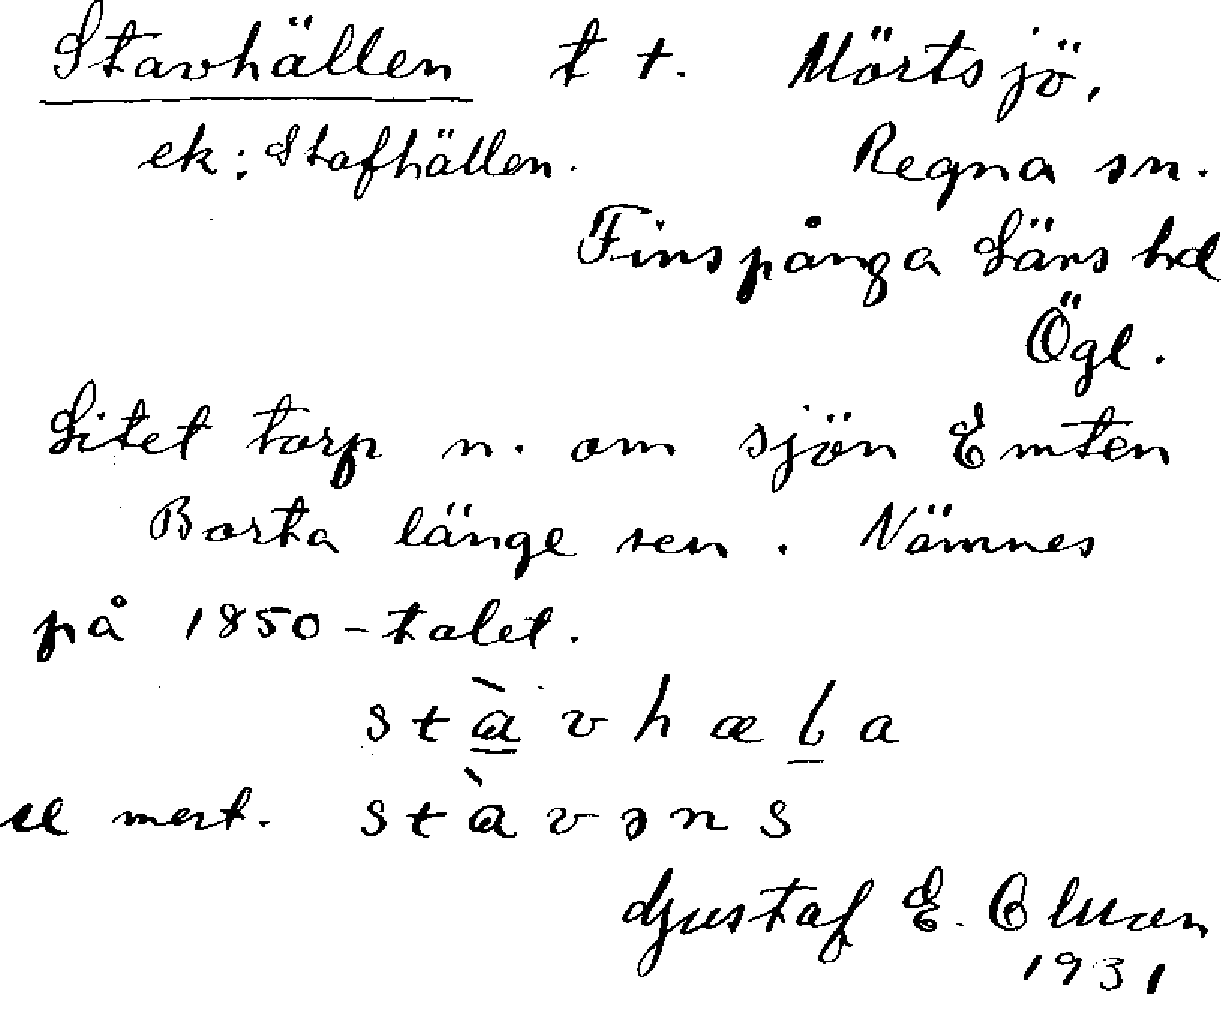 Stavhällen t t. Mörtsjö,
ek: Stafhällen. Regna sn.
Finspånga Läns hd
Ögl.
Litet torp n. om sjön Emten
Borta länge sen. Nämnes
på 1850-talet.
stàvhæla
el mest. stàvəns
Gustaf E.
1931